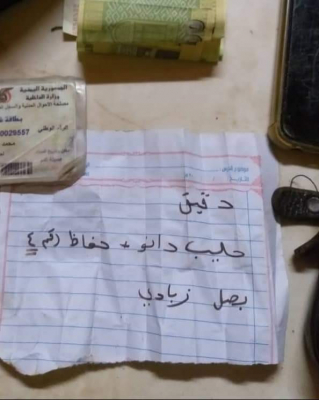 الجمهورية اليمنية
وزارة الداخلية
مصلحة الأحوال المدنية والسجل
بطاقة
الرقم الوطني
0029557
محمد
دقيق
حليب دانو + حفاظ رقم ٤
بصل زبادي